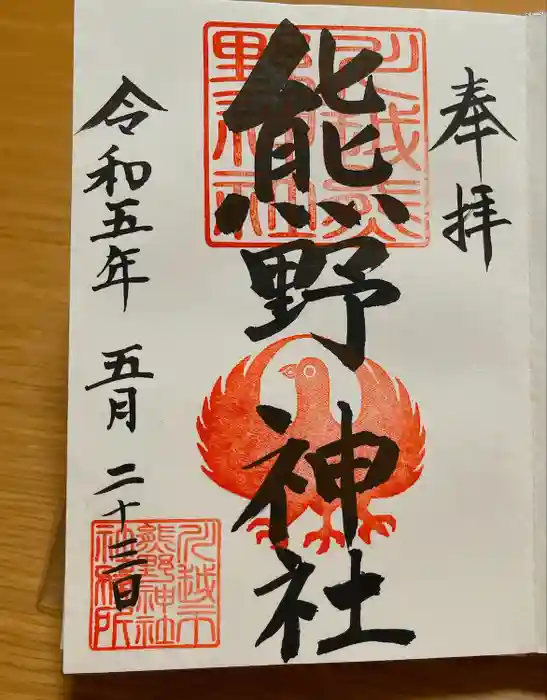 奉拝
熊野神社
令和五年 五月 二十三日
川越熊野神社
川越市熊野神社社務所